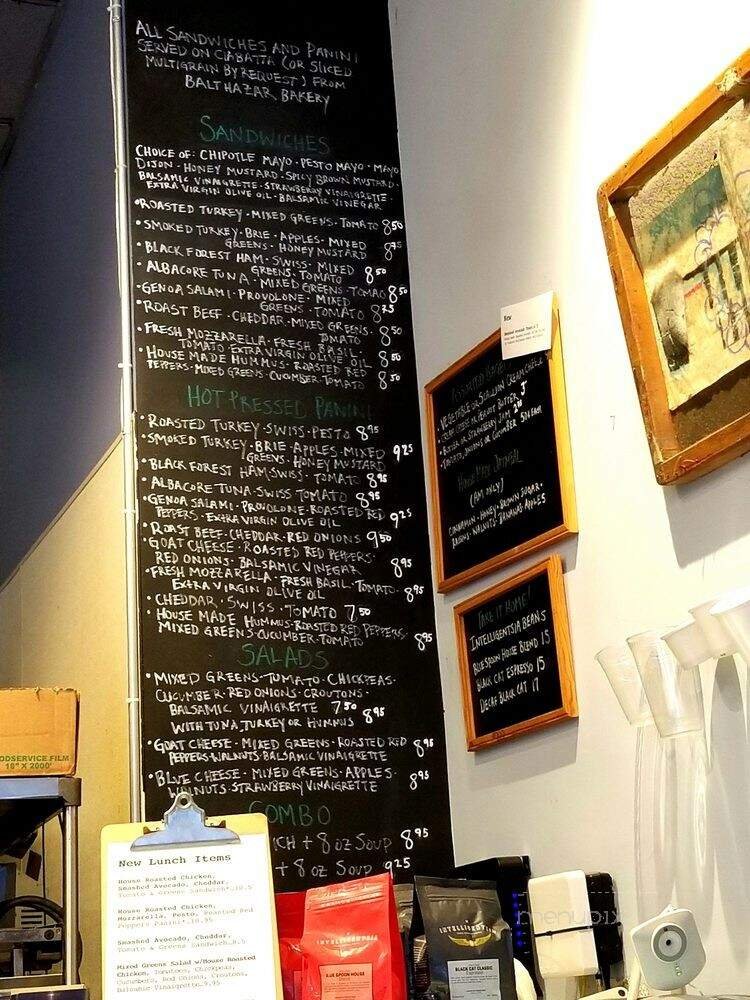 ALL SANDWICHES AND PANINI
SERVED ON CIABATTA (OR SLICED
MULTIGRAIN BY REQUEST) FROM
BALTHAZAR BAKERY
SANDWICHES
CHOICE OF: CHIPOTLE MAYO · PESTO MAYO · MAYO
DIJON · HONEY MUSTARD · SPICY BROWN MUSTARD ·
BALSAMIC VINAIGRETTE · STRAWBERRY VINAIGRETTE
EXTRA VIRGIN OLIVE OIL · BALSAMIC VINEGAR
• ROASTED TURKEY · MIXED GREENS · TOMATO 8.50
• SMOKED TURKEY · BRIE · APPLES · MIXED
GREENS · HONEY MUSTARD
• BLACK FOREST HAM · SWISS · MIXED
GREENS · TOMATO 8.50
• ALBACORE TUNA · MIXED GREENS · TOMATO 8.50
• GENOA SALAMI · PROVOLONE · MIXED
GREENS · TOMATO
• ROAST BEEF · CHEDDAR · MIXED GREENS ·
TOMATO 8.50
• FRESH MOZZARELLA · FRESH BASIL ·
TOMATO EXTRA VIRGIN OLIVE OIL 8.50
• HOUSE MADE HUMMUS · ROASTED RED
PEPPERS · MIXED GREENS · CUCUMBER · TOMATO 8.50
HOT PRESSED PANINI
• ROASTED TURKEY · SWISS · PESTO 8.95
• SMOKED TURKEY · BRIE · APPLES · MIXED 9.25
GREENS · HONEY MUSTARD
• BLACK FOREST HAM · SWISS · TOMATO 8.95
• ALBACORE TUNA · SWISS TOMATO 8.95
• GENOA SALAMI · PROVOLONE · ROASTED RED
PEPPERS · EXTRA VIRGIN OLIVE OIL 9.25
• ROAST BEEF · CHEDDAR · RED ONIONS 9.50
• GOAT CHEESE · ROASTED RED PEPPERS ·
RED ONIONS · BALSAMIC VINEGAR 8.95
• FRESH MOZZARELLA · FRESH BASIL · TOMATO ·
EXTRA VIRGIN OLIVE OIL 8.95
• CHEDDAR · SWISS · TOMATO 7.50
• HOUSE MADE HUMMUS · ROASTED RED PEPPERS ·
MIXED GREENS · CUCUMBER · TOMATO 8.95
SALADS
• MIXED GREENS · TOMATO · CHICKPEAS ·
CUCUMBER · RED ONIONS · CROUTONS ·
BALSAMIC VINAIGRETTE 7.50
WITH TUNA, TURKEY OR HUMMUS 8.95
• GOAT CHEESE · MIXED GREENS · ROASTED RED 8.95
PEPPERS · WALNUTS · BALSAMIC VINAIGRETTE
• BLUE CHEESE · MIXED GREENS · APPLES ·
WALNUTS · STRAWBERRY VINAIGRETTE 8.95
COMBO
ICH + 8 OZ SOUP 8.95
+ 8 OZ SOUP 9.25
New
VEGETABLE OR SCALLION CREAM CHEESE
BUTTER OR STRAWBERRY JAM
TOMATO, ONIONS OR CUCUMBER 50¢ EACH
OATMEAL
(AM ONLY)
CINNAMON · HONEY · BROWN SUGAR ·
RAISINS · WALNUTS · BANANAS · APPLES
TAKE IT HOME!
INTELLIGENTSIA BEANS
BLUE SPOON HOUSE BLEND 15
BLACK CAT ESPRESSO 15
DECAF BLACK CAT 17
ODSERVICE FILM
18" X 2000'
New Lunch Items
House Roasted Chicken,
Smashed Avocado, Cheddar,
Tomato & Greens Sandwich*.10.5
House Roasted Chicken,
Mozzarella, Pesto, Roasted Red
Peppers Panini*.10.95
Smashed Avocado, Cheddar,
Tomato & Greens Sandwich.8.5
Mixed Greens Salad w/House Roasted
Chicken, Tomatoes, Chickpeas,
Cucumbers, Red Onions, Croutons,
Balsamic Vinaigrette.9.95
INTELLIGENTSIA
BLUE SPOON HOUSE
INTELLIGENTSIA
BLACK CAT CLASSIC
Espresso